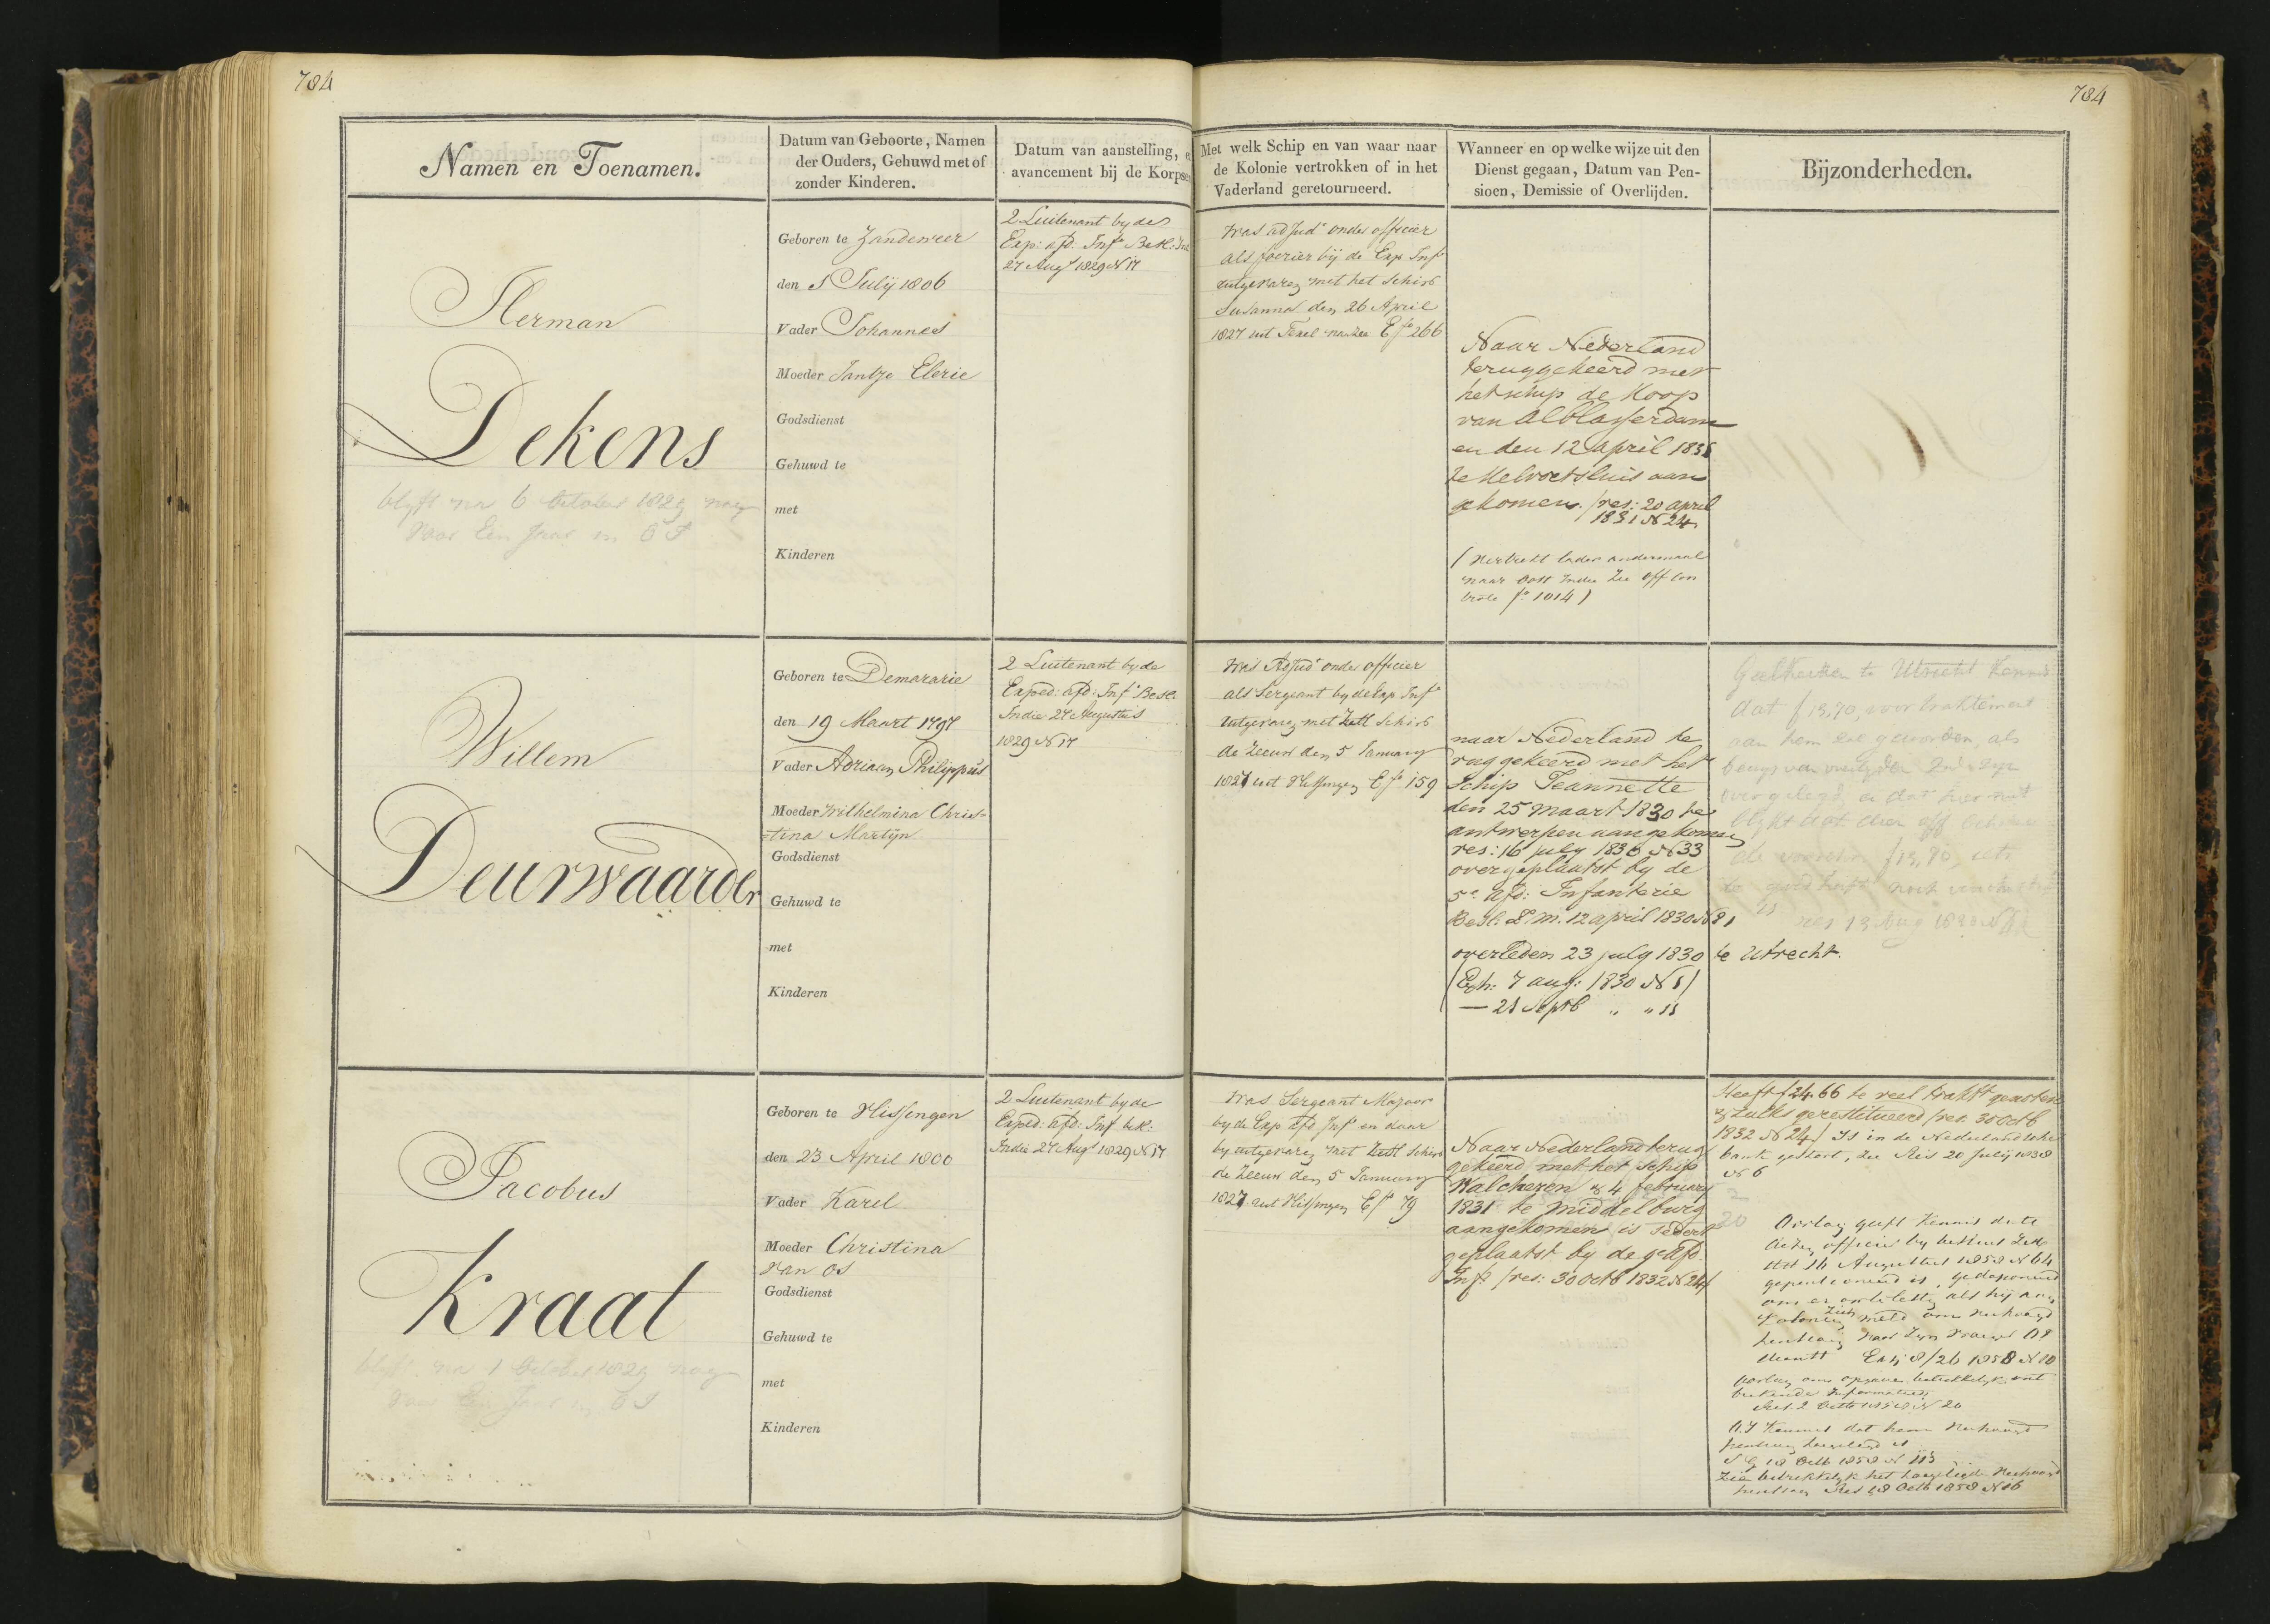 784
784
Namen en Toenamen.
Datum van Geboorte, Namen
der Ouders, Gehuwd met of
zonder Kinderen.
Datum van aanstelling, en
avancement bij de Korpsen
Met welk Schip en van waar naar
de Kolonie vertrokken of in het
Vaderland geretourneerd.
Wanneer en op welke wijze uit den
Dienst gegaan, Datum van Pen-
sioen, Demissie of Overlijden.
Bijzonderheden.
Herman
Dekens
blyft na 6 October 1829 nog
voor Een Jaar in
Geboren te Zandeweer
den 5 Julij 1806
Vader Johannes
Moeder Jantje Elerie
Godsdienst
Gehuwd te
met
Kinderen
2 Luitenant by de
Exp: afd: Inf. Besl: Ind
27 Augt 1829 N 17
was adjudt onder officier
als foerier bij de Exp Inf
uitgevaren met het Schip
Susanna den 26 April
1827 uit Texel E fo 266
Naar Nederland
teruggekeerd met
het schip de Hoop
van Alblasserdam
en den 12 april 1831
te Helvoetsluis aan
gekomen. /res: 20 april
1831 N 24
( Vertrekt andermaal
naar Oost Indie Zie off Con
trole fo 1014 )
Willem
Deurwaarder
Geboren te Demararie
den 19 Maart 1797
Vader Adriaan Philippus
Moeder Wilhelmina Chris=
=tina Martijn
Godsdienst
Gehuwd te
met
Kinderen
2 Luitenant by de
Exped: afd: Inf. Besl:
Indie 27 Augustus
1829 N 17
was Adjudt onder officier
als Sergeant by de Exp Inf
uitgevaren met Schip
de Zeeuw den 5 January
1827 uit Vlissingen E fo 159
naar Nederland te
rug gekeerd met het
Schip Jeannette
den 25 maart 1830 te
antwerpen aangekomen
res: 16 july 1830 N 33
overgeplaatst by de
5e afd: Infanterie
Besl: Z. M. 12 april 1830 N 81
overleden 23 july 1830 te Utrecht.
(Exh: 7 aug: 1830 N 5)
— 21 Septb " " 11
te Utrecht Kennis
dat f 13,70, voor traktement
aan hem geworden, als
res 13 Aug 1830
Jacobus
Kraat
blyft na 1 October 1829 nog
voor Een Jaar in
Geboren te Vlissingen
den 23 April 1800
Vader Karel
Moeder Christina
van Os
Godsdienst
Gehuwd te
met
Kinderen
2 Luitenant by de
Exped: afd: Inf besl:
Indie 27 Augt 1829 N 17
was Sergeant Majoor
by de Exp afd Inf en daar
by uitgevaren met Schip
de Zeeuw den 5 January
1827 uit Vlissingen E fo 79
Naar Nederland terug
gekeerd met het schip
Walcheren & 4 february
1831 te Middelburg
aangekomen is sedert
geplaatst by de 9e afd
Inf: /res: 30 octb 1832 N 24/
Heeft f 24.66 te veel trakt genoten
& zulks gerestitueerd /res. 30 octb
1832 N 24/ Is in de Nederlandsche
bank gestort, zie Res 20 Julij 1838
N 6
Oorlog geeft kennis dat
officier by besluit
16 Augustus 1858 N 64
gepensioneerd is,
als hij aan
Kolonien zich meld om verhoogd
pensioen voor zijn
Exh 8/26 1858 N 10
Oorlog om opgave betrekkelyk
Informatien
Res. 2 Octb 1858 N 20
Kennis dat hem verhoogd
pensioen toegelegd is
18 Octb 1858 N 113
Zie betrekkelyk het toegelegde verhoogd
pensioen Res 18 Octb 1858 N 16